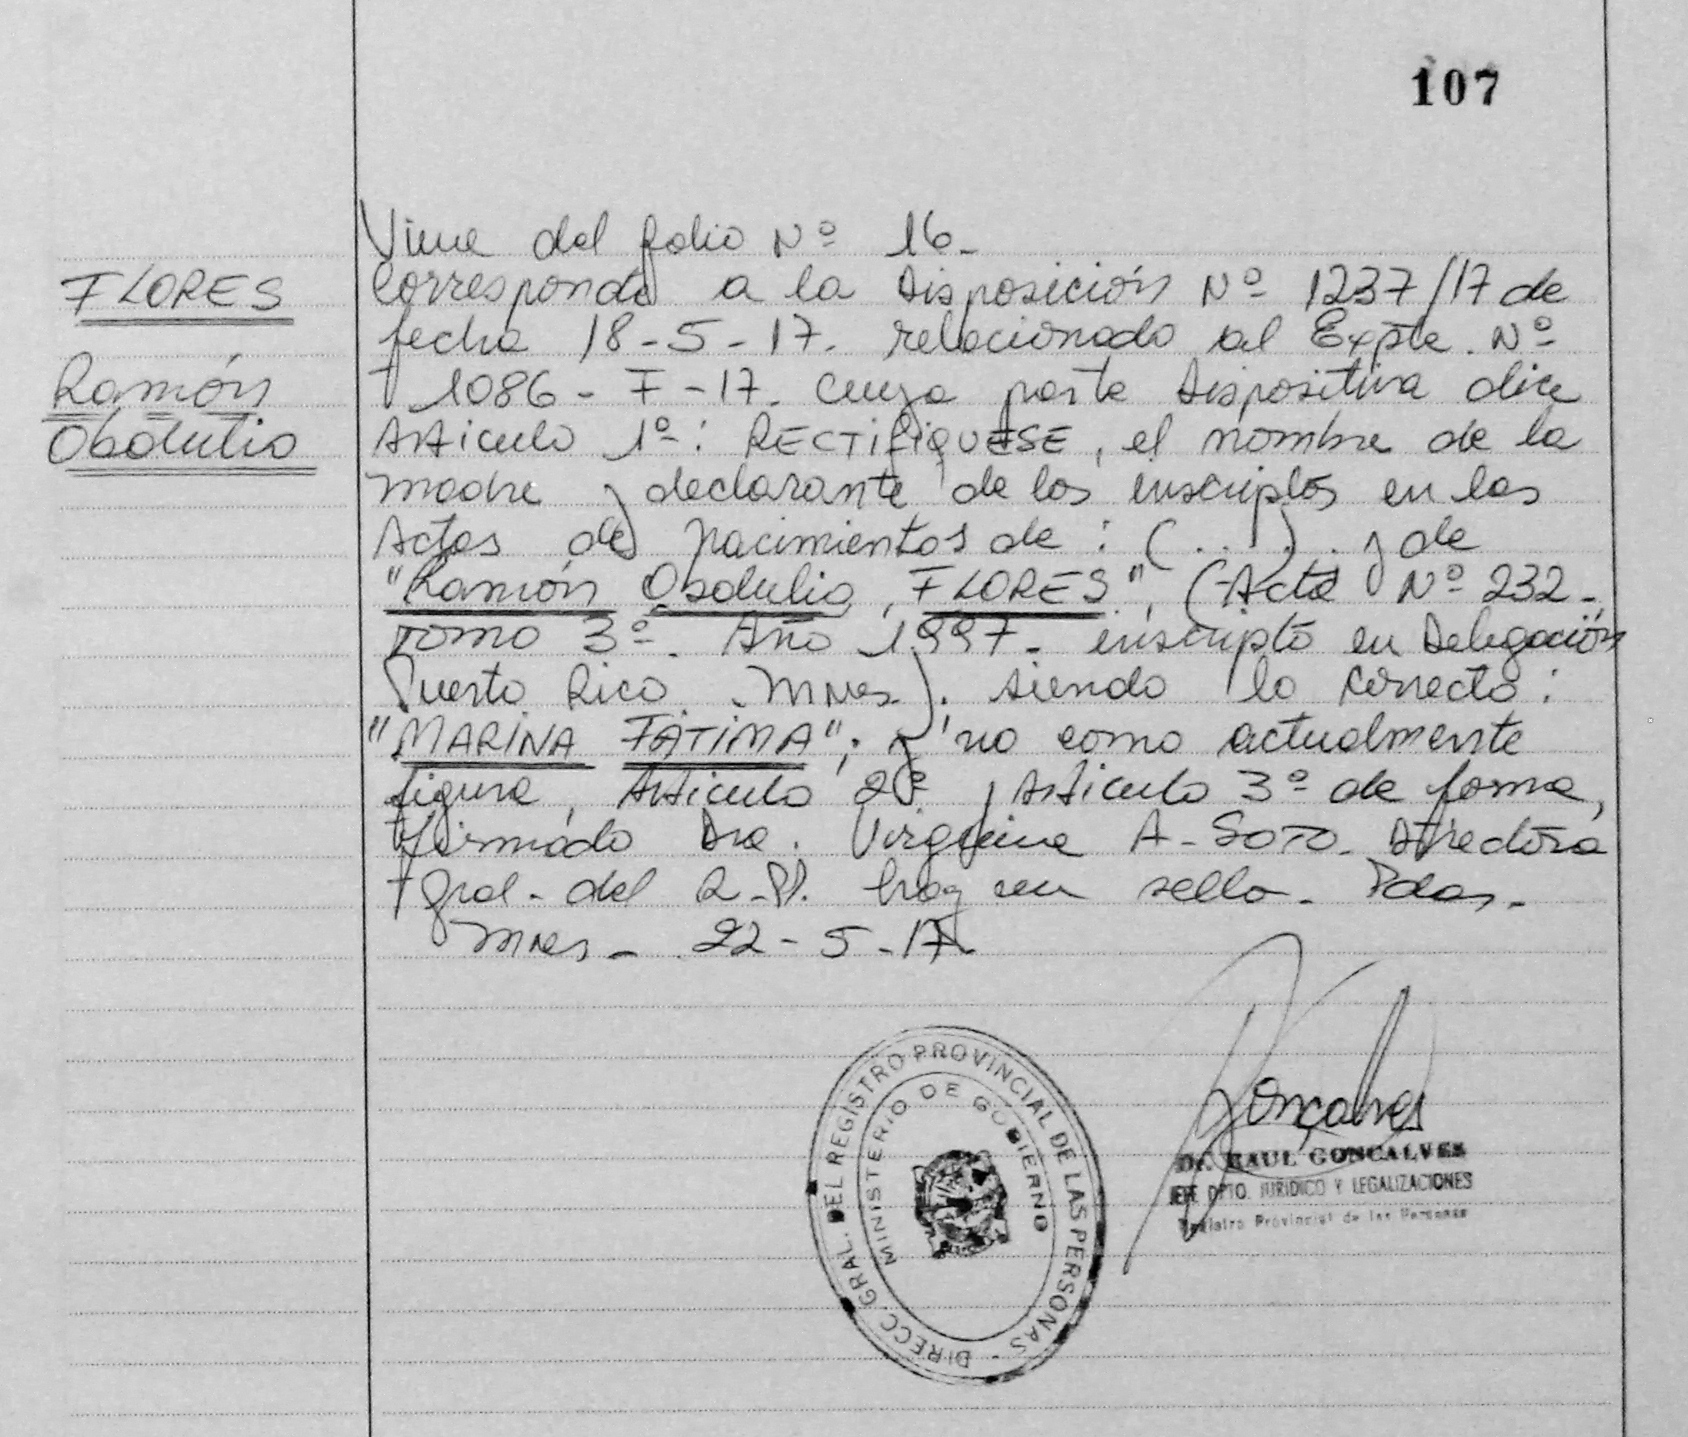 107
Viene del folio Nº 16-
FLORES
Ramón
Obdulio
Corresponde a la Disposición Nº 1237/17 de
fecha 18-5-17. relacionado al Expte. Nº
1086-F-17. Cuya parte Dispositiva dice
Articulo 1º: RECTIFIQUESE, el nombre de la
madre y declarante de los inscriptos en las
Actas de Nacimientos de: (....). y de
"Ramón Obdulio, FLORES", (Acta Nº 232-
Tomo 3º. Año 1997- inscripto en Delegación
Puerto Rico. Mnes). siendo lo correcto:
"MARINA FÁTIMA"; y no como actualmente
figura, Articulo 2º y Articulo 3º de forma,
firmado Dra. Virginia A-SOTO. Directora
Gral. del R.P. hay un sello. Pdas.
Mnes- 22-5-17.
DIRECC. GRAL. DEL REGISTRO PROVINCIAL DE LAS PERSONAS -
MINISTERIO DE GOBIERNO
Gonçalves
Dr. RAUL GONCALVES
JEFE DPTO. JURIDICO Y LEGALIZACIONES
Registro Provincial de las Personas